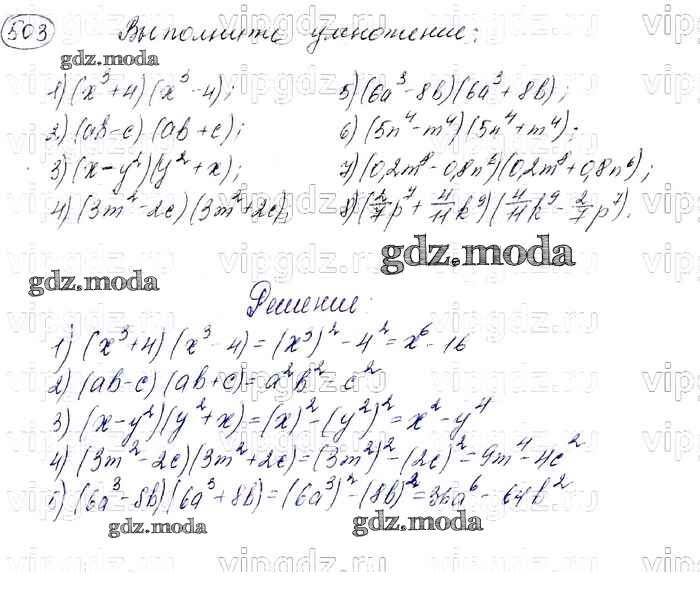 503 Выполнить умножение:
gdz.moda
1) (x³+4)(x³-4);
2) (ab-c)(ab+c);
3) (x-y²)(y²+x);
4) (3m²-2c)(3m²+2c);
5) (6a³-8b)(6a³+8b);
6) (5n⁴-m⁴)(5n⁴+m⁴);
7) (0,2m⁸-0,8n⁶)(0,2m⁸+0,8n⁶);
8) (2/7p⁷+4/11k⁹)(4/11k⁹-2/7p⁷).
gdz.moda
gdz.moda
Решение:
1) (x³+4)(x³-4)=(x³)²-4²=x⁶-16
2) (ab-c)(ab+c)=a²b²-c²
3) (x-y²)(y²+x)=(x)²-(y²)²=x²-y⁴
4) (3m²-2c)(3m²+2c)=(3m²)²-(2c)²=9m⁴-4c²
5) (6a³-8b)(6a³+8b)=(6a³)²-(8b)²=36a⁶-64b²
gdz.moda
gdz.moda
vipgdz.ru